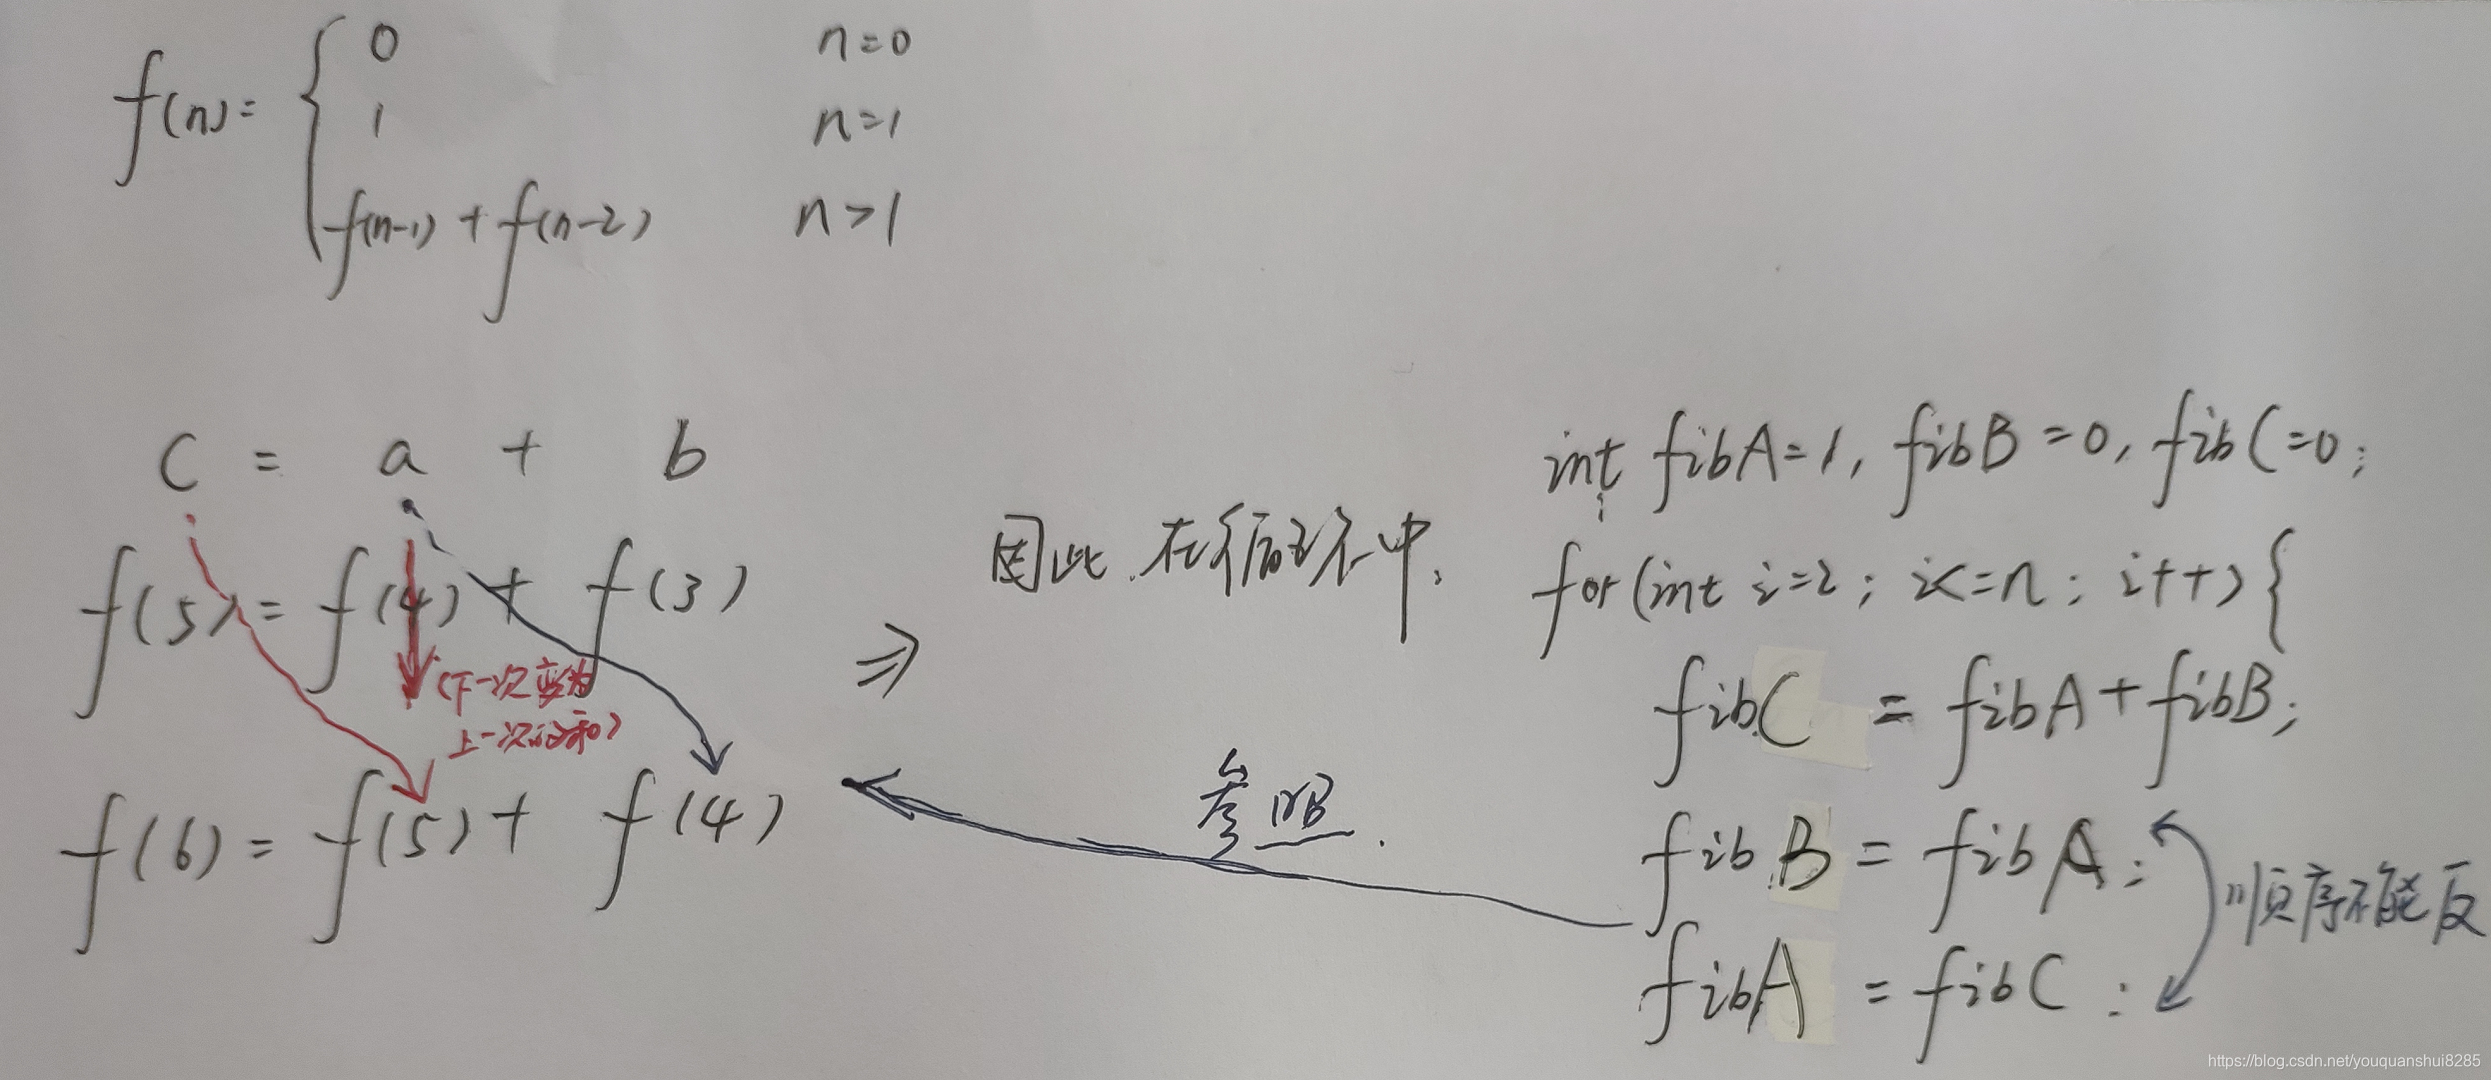 f(n)= { 0 n=0
1 n=1
f(n-1) + f(n-2) n>1
c = a + b
f(5) = f(4) + f(3)
(下一次变为
上一次的和)
f(6) = f(5) + f(4)
⇒
因此.在循环中,
参照.
int fibA=1, fibB=0, fibC=0;
for(int i=2; i<=n; i++){
fibC = fibA+fibB;
fibB = fibA;
fibA = fibC;
顺序不能反
https://blog.csdn.net/youquanshui8285